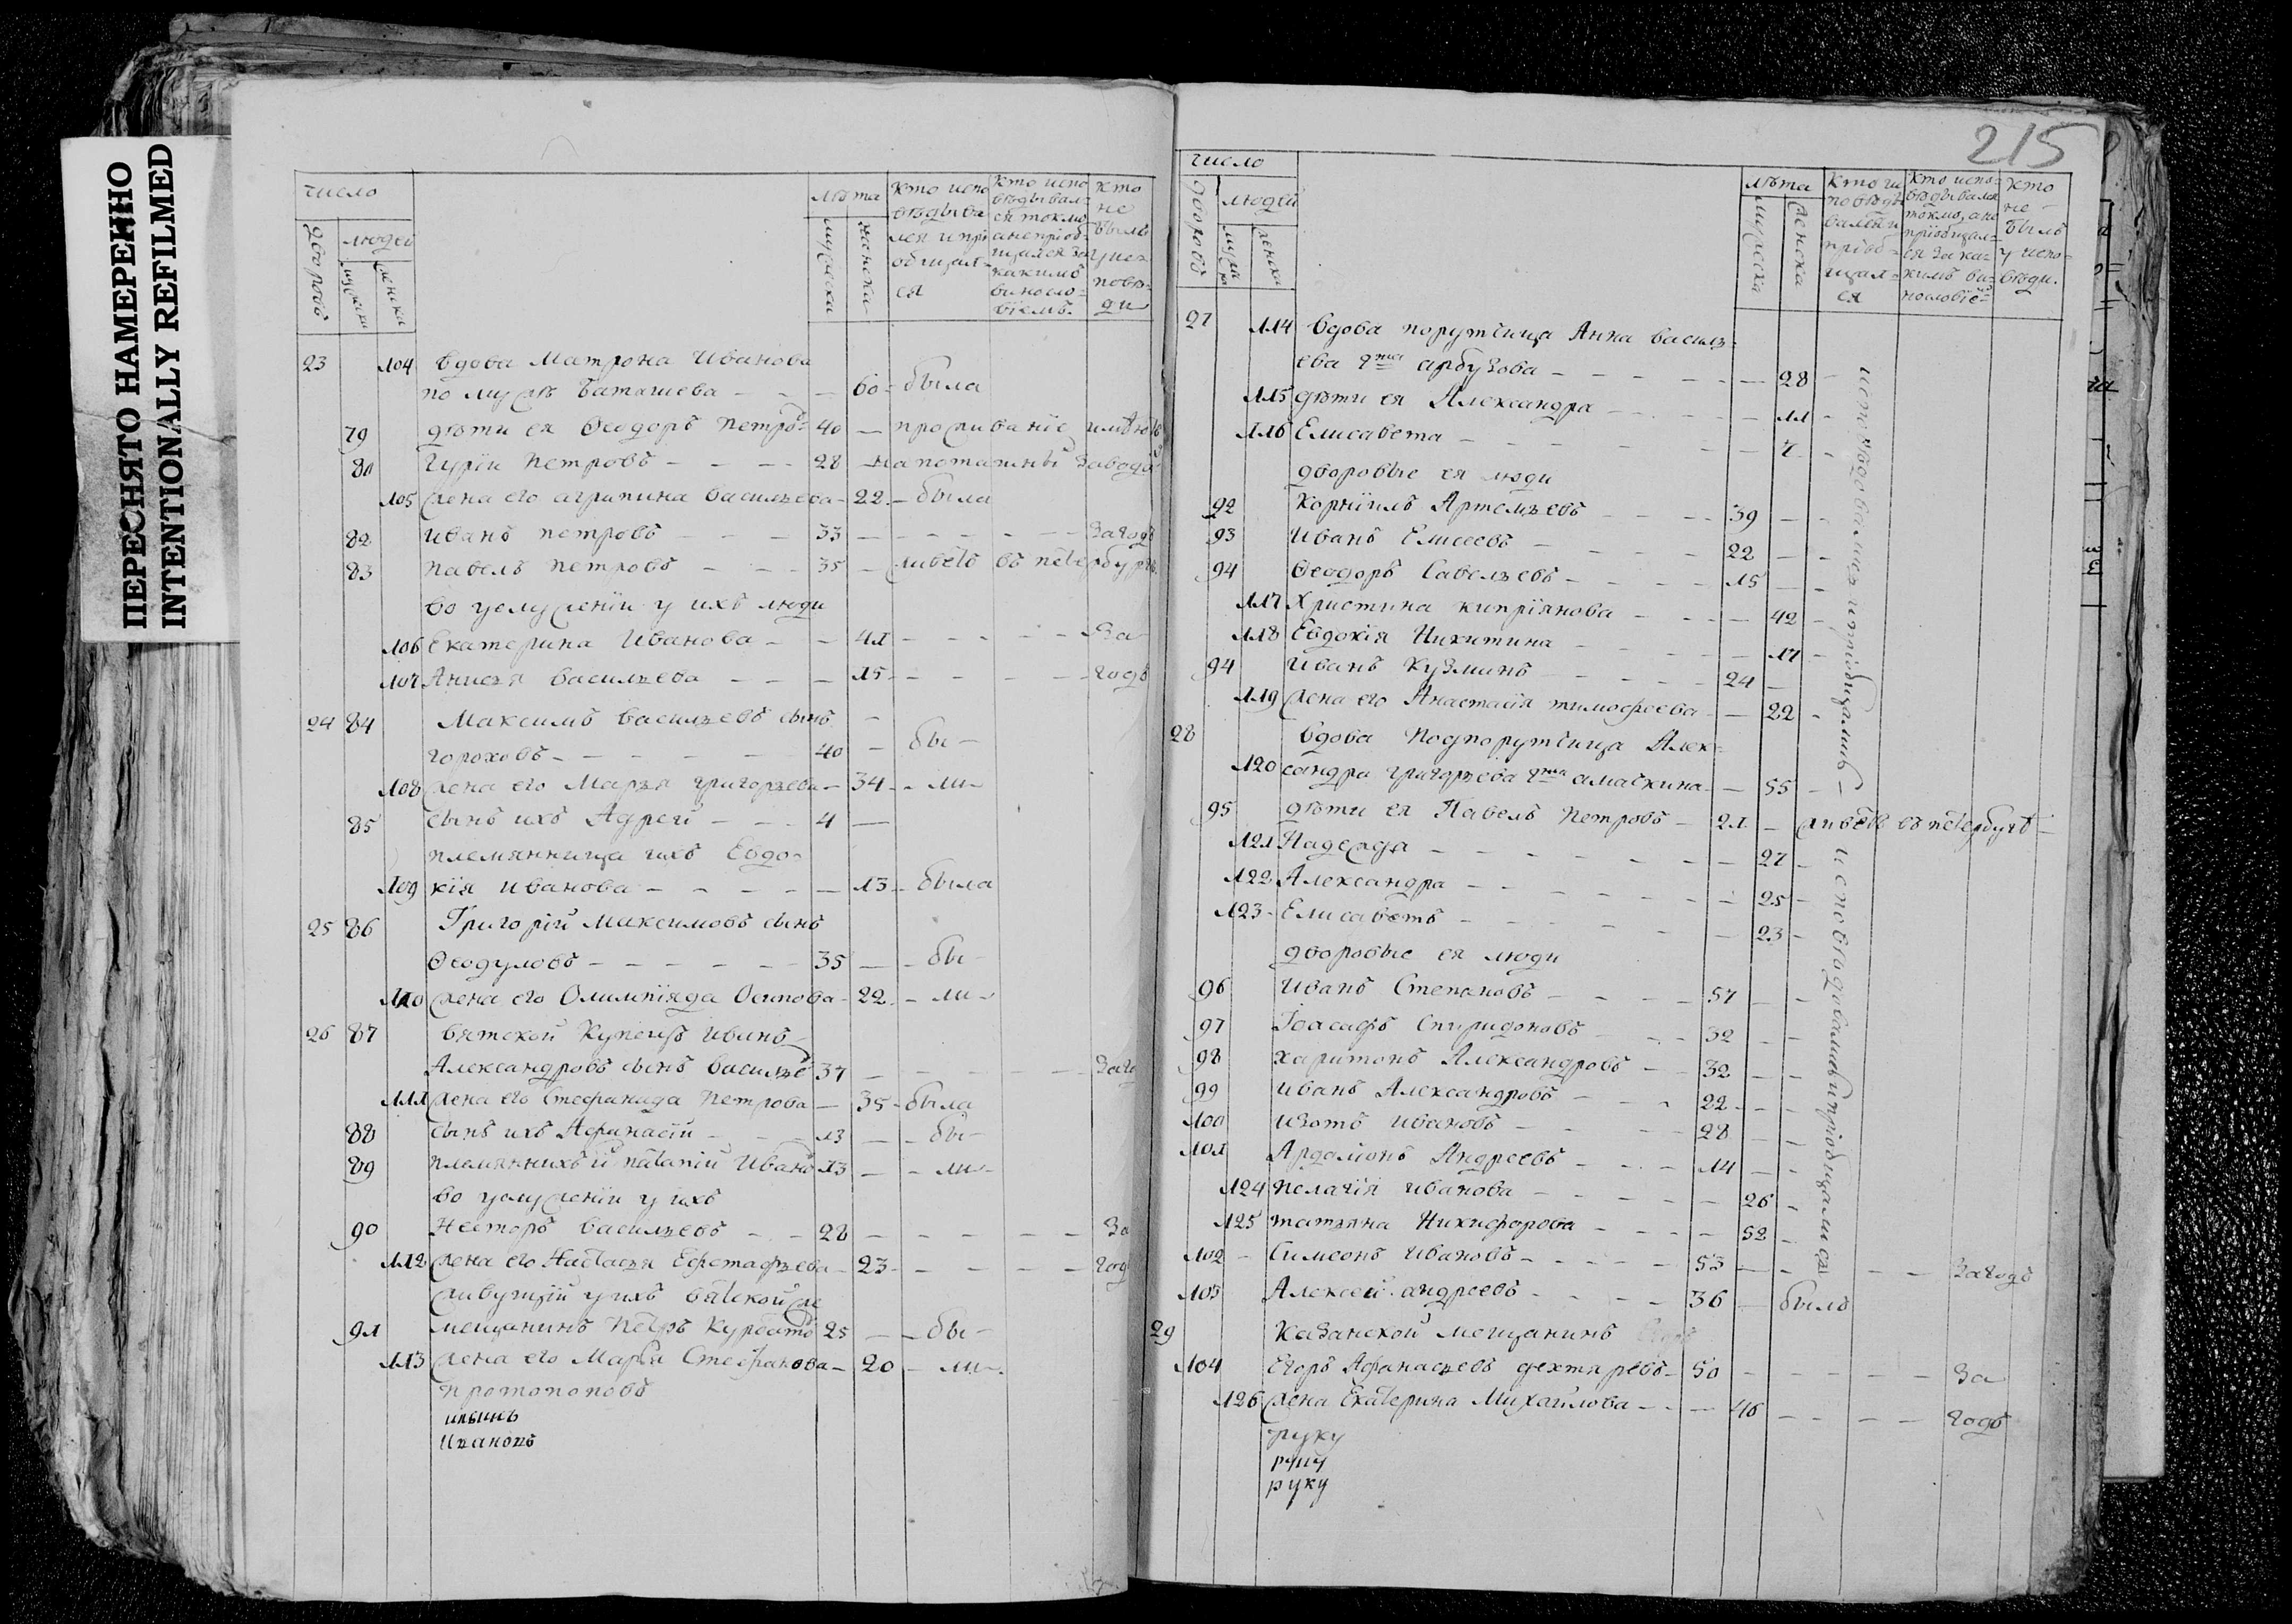 ПЕРЕСНЯТО НАМЕРЕННО
INTENTIONALLY REFILMED
число
лѣта
дворовъ
людей
мужеска
женска
мужеска
женска
кто испо
вѣдыва
лся и прі
общал=
ся
кто испо
вѣдывал=
ся токмо
а не пріоб=
щался за
какимъ
виносло=
віемъ.
кто
не
былъ
у исп
повѣ=
ди
23 104 вдова Матрона Иванова
по мужѣ Баташева — — — 60 - была
79 дѣти ея Ѳеодоръ Петро= 40 — проживаніе имѣютъ
80 Гуріи Петровъ — — — 28 — на поташны заводѣ
105 жена его агрипина васильева - 22 - была
82 иванъ петровъ — — — 33 — — — — — загодъ
83 павелъ петровъ — — 35 — живетъ въ петербургѣ
во услуженіи у ихъ люди
106 Екатерина Иванова — — 41 — — — — За
107 Анисья васильева — — — 15 — — — — годъ
24 84 Максимъ васильевъ сынъ
гороховъ — — — — — 40 — бы —
108 жена его Марья григорьева — 34 - - ли -
85 сынъ ихъ Адрей — — — 4 —
племянница ихъ Евдо=
109 кія иванова — — — — — 13 - была
25 86 Григорій максимовъ сынъ
Ѳеодуловъ — — — — — 35 — - бы -
110 жена его Олимпіяда Осипова - 22 - - ли -
26 87 вятской купецъ иванъ
Александровъ сынъ василье 37 — — — — — Заго
111 жена его Стефанида Петрова — 35 - была
88 сынъ ихъ Афинасіи — — 13 — - бы -
89 племянникъ и паталіи Иванъ 13 — - ли -
во услуженіи у ихъ
90 Несторъ васильевъ — — 28 — — — — — За
112 жена его Настасья Ефстафьева - 23 - — — — — год
живущіи у ихъ вятской же
91 мещанинъ петръ Курбатъ 25 — - бы -
113 жена его Марья Стефанова — 20 - ли -
протопоповъ
ильинъ
Ивановъ
215
число
лѣта
дворовъ
людей
мужеска
женска
мужеска
женска
кто ис
повѣды
вался и
пріоб=
щал=
ся
кто испо=
вѣдывался
токмо, а не
пріобщал=
ся за ка=
кимъ ви=
нословіе=
кто
не
былъ
у испо=
вѣди.
27 114 вдова порутчица Анна василь=
ева 2на арбузова — — — — — — 28 -
115 дѣти ея Александра — — — — — 11 -
116 Елисавета — — — — — — 7 -
дворовые ея люди
92 Корнилъ Артемьевъ — — — 39 — -
93 Иванъ Елисеевъ — — — — 22 — -
94 Ѳеодоръ Савельевъ — — — — 15 — -
117 Христина кипріянова — — — — 42 -
118 Евдокія Никитина — — — — — 17 -
94 иванъ Кузминъ — — — 24 —
119 жена его Анастасія тимофеева — — 22 -
исповѣдовались и пріобщались —
28 вдова Подпорутчица Алек=
120 сандра григорьева 2на амачкина — — 55 -
95 дѣти ея Павелъ Петровъ — 21 — живетъ въ петербургѣ —
121 Надежда — — — — — — — 27 -
122 Александра — — — — — — 25 -
123 - Елисаветъ — — — — — — 23 -
дворовые ея люди
96 Иванъ Степановъ — — — — 57 — -
97 Іоасафъ Спиридоновъ — — — 32 — -
98 харитонъ Александровъ — — 32 — -
99 иванъ Александровъ — — — 22 — -
100 изотъ ивановъ — — — — 28 — -
101 Ардаліонъ Андреевъ — — — 14 — -
124 пелагія иванова — — — — — 26 -
125 татьяна Никифорова — — — — 52 -
исповѣдовались и пріобщались
102 - Симеонъ ивановъ — — — — — 53 — — — — загодъ
103 Алексеи андреевъ — — — — 36 — былъ
29 Казанской мещанинъ
104 Егоръ Афанасьевъ дехтяревъ - 50 — — — — — За
126 жена Екатерина Михаилова — — — 46 — — — — годъ
руку
руку
руку